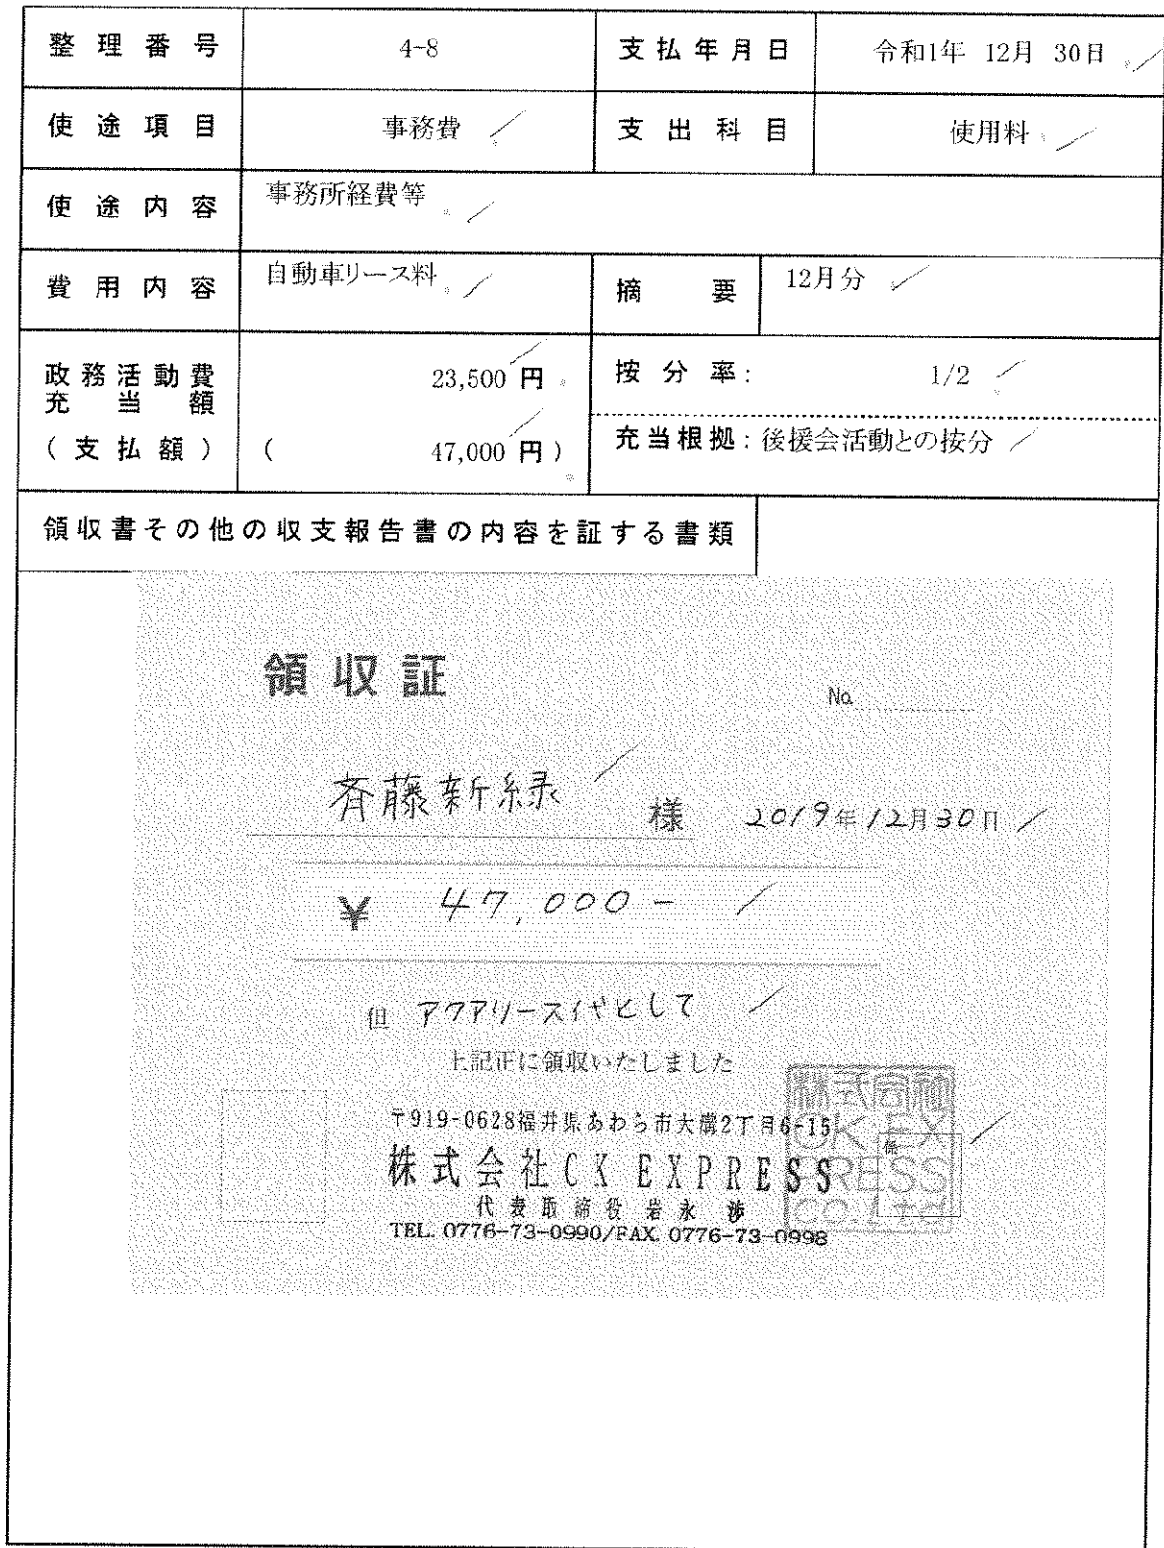 整理番号 4-8 支払年月日 令和1年 12月 30日
使途項目 事務費 支出科目 使用料
使途内容 事務所経費等
費用内容 自動車リース料 摘要 12月分
政務活動費充当額 23,500円 按分率: 1/2
(支払額) ( 47,000円) 充当根拠:後援会活動との按分
領収書その他の収支報告書の内容を証する書類
領収証
No.
斉藤新緑 様 2019年12月30日
¥ 47,000-
但 アクアリース代として
上記正に領収いたしました
〒919-0628福井県あわら市大溝2丁目6-15
株式会社CK EXPRESS
係
代表取締役 岩永 渉
TEL. 0776-73-0990/FAX. 0776-73-0998